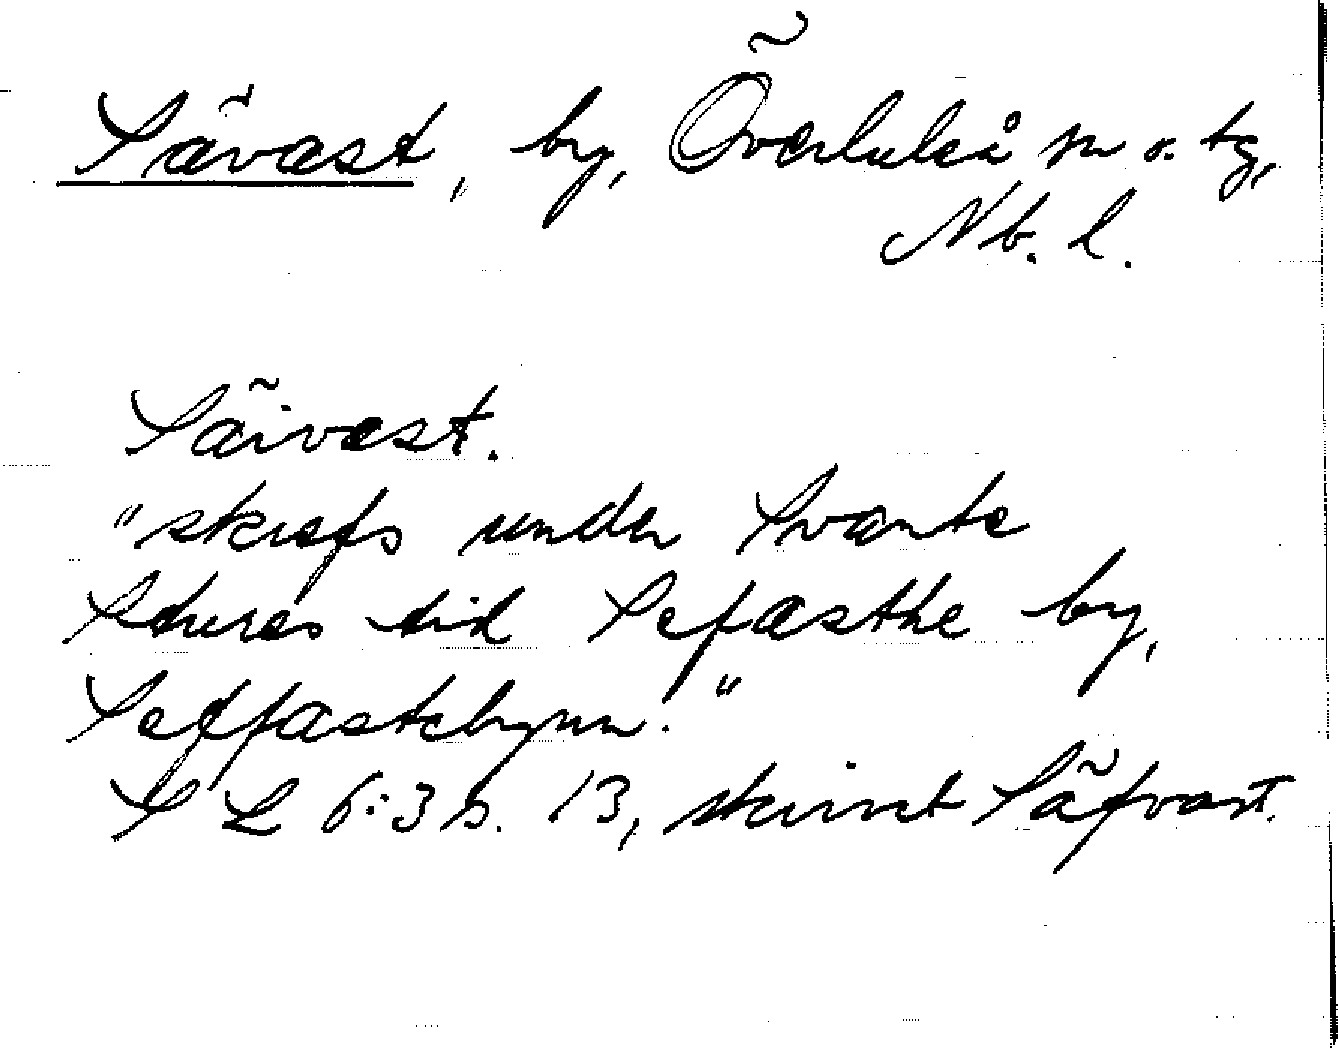 Sävast, by, Överluleå sn o. tg,
Nb. l.
Säivast.
"skrefs under Svante
Stures tid Sefasthe by,
Seffastebynn."
S L 6:3 s. 13, skrivet Säfvast.